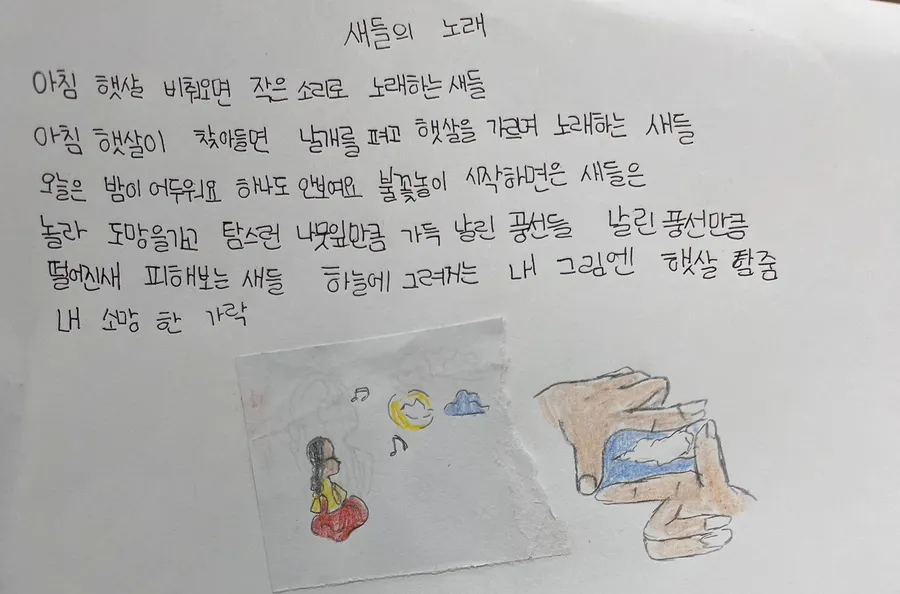 새들의 노래
아침 햇살 비춰오면 작은 소리로 노래하는 새들
아침 햇살이 찾아들면 날개를 펴고 햇살을 가르며 노래하는 새들
오늘은 밤이 어두워요 하나도 안보여요 불꽃놀이 시작하면은 새들은
놀라 도망을가고 탐스런 나뭇잎만큼 가득 날린 풍선들 날린 풍선만큼
떨어진새 피해보는 새들 하늘에 그려지는 내 그림엔 햇살 한줌
내 소망 한 가락